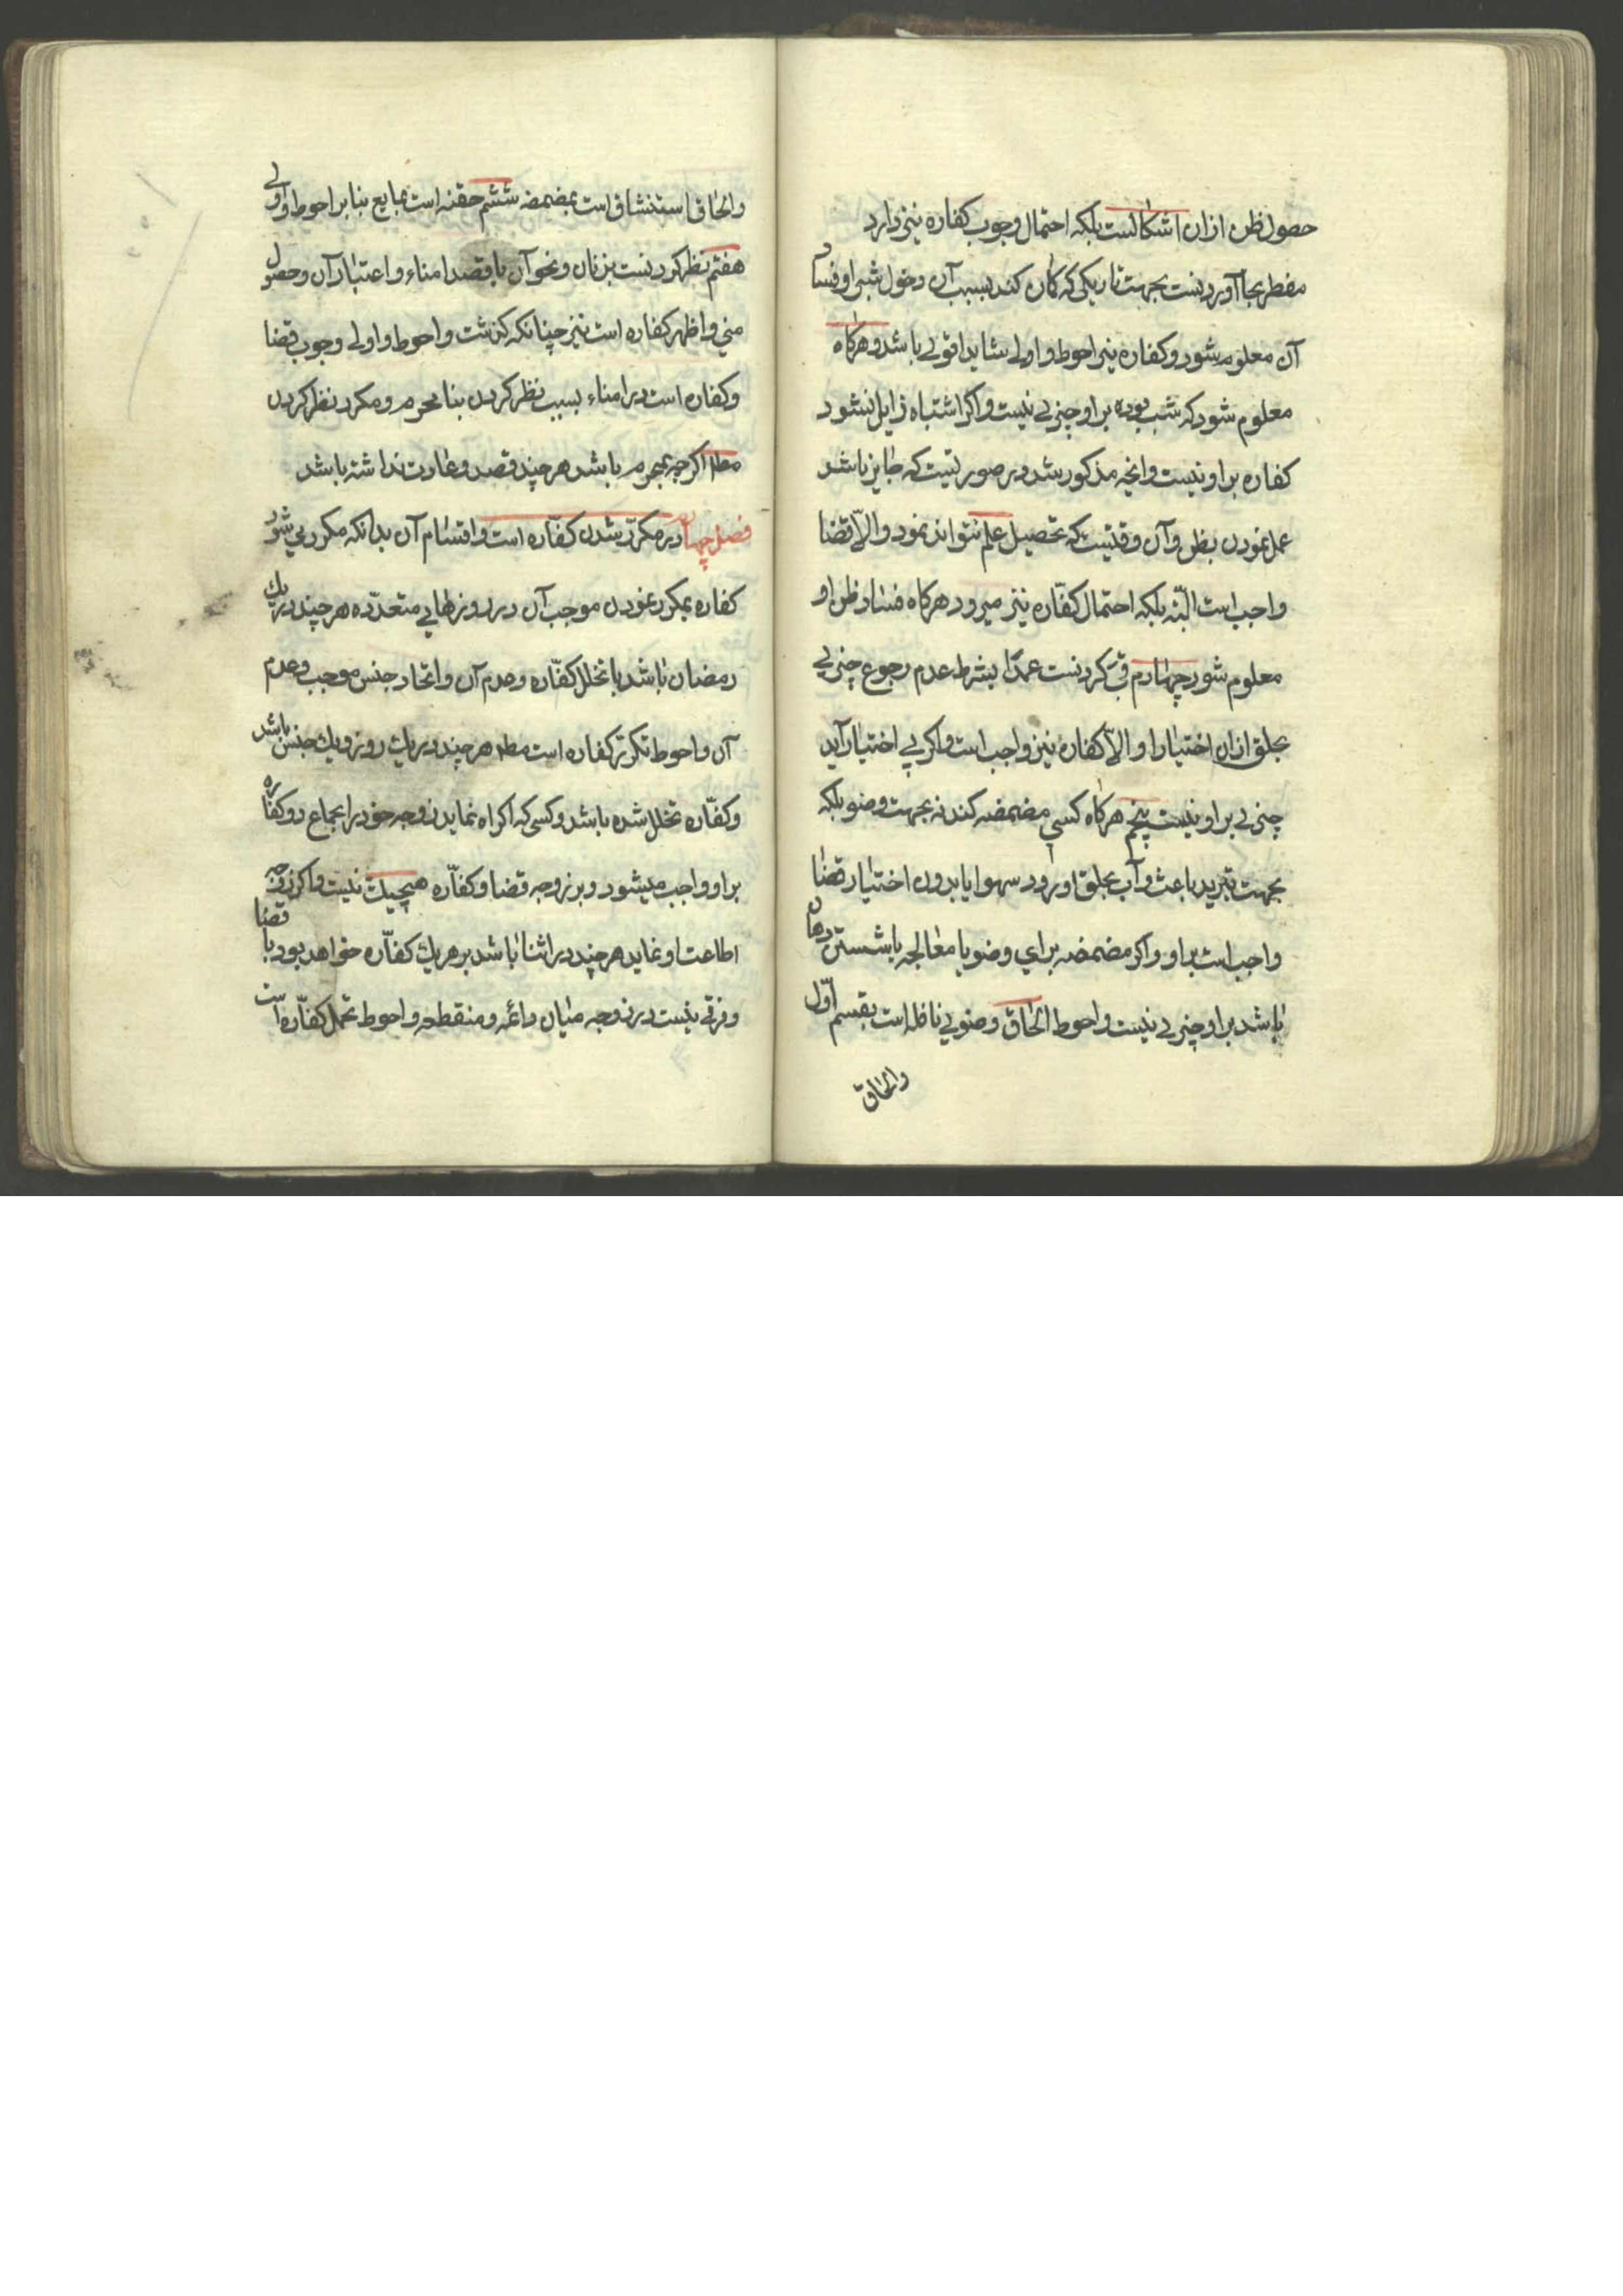 حصول ظن ازان اشکالست بلکه احتمال وجوب کفاره نیز دارد
مفطر بجا آوردنست بجهت تاریکی که کمان کند بسبب آن دخول شب را و فساد
آن معلوم شود و کفاره نیز احوط و اولی شاید اقوی باشد و هرکاه
معلوم شود که شب بوده بر او چیزی نیست و اکر اشتباه زایل نشود
کفاره بر او نیست و آنچه مذکور شد در صورتیست که جایز باشد
عمل نمودن بظن و آن وقتیست که تحصیل علم نتواند نمود و الّا قضا
واجب است البتّه بلکه احتمال کفّاره نیز میرود هرکاه فساد ظن او
معلوم شود چهارم قی کردنست عمدًا بشرط عدم رجوع چیزی
بحلق ازان اختیارا و الّا کفاره نیز واجب است و اکر بی اختیار آید
چیزی بر او نیست پنجم هرکاه کسی مضمضه کند نه بجهت وضو بلکه
بجهت تبرید یا عبث و آب بحلق او رود سهوا یا بدون اختیار قضا
واجب است بر او و اکر مضمضه برای وضو یا معالجه یا شستن دهان
باشد بر او چیزی نیست و احوط الحاق وضوی نافله است بقسم اوّل
والحاق
والحاق استنشاق است بمضمضه ششم حقنه است بمایع بنا بر احوط و اولی
هفتم نظر کردنست بزنان و نحو آن با قصد امناء و اعتبار آن و حصول
منی و اظهر کفاره است نیز چنانکه کذشت و احوط و اولی وجوب قضا
و کفاره است در امناء بسبب نظر کردن بنا محرم و مکرر نظر کردن
مطلقا اکرچه بمحرم باشد هرچند قصد و عادت نداشته باشد
فصل چهارم در مکرّر شدن کفّاره است و اقسام آن بدانکه مکرر می شود
کفاره بمکرر نمودن موجب آن در روزهای متعدّده هرچند در یک
رمضان باشد با تخلل کفّاره و عدم آن و اتحاد جنس موجب و عدم
آن و احوط تکرّر کفاره است مطلقا هرچند در یک روز و یک جنس باشد
و کفّاره تخلل شده باشد و کسی که اکراه نماید زوجه خود را بجماع دو کفّاره
بر او واجب میشود و بر زوجه قضا و کفّاره هیچیک نیست و اکر زوجه
اطاعت او نماید هرچند در اثنا باشد بر هر یک کفّاره خواهد بود با قضا
و فرقی نیست در زوجه میان دائمه و منقطعه و احوط تحمل کفّاره است